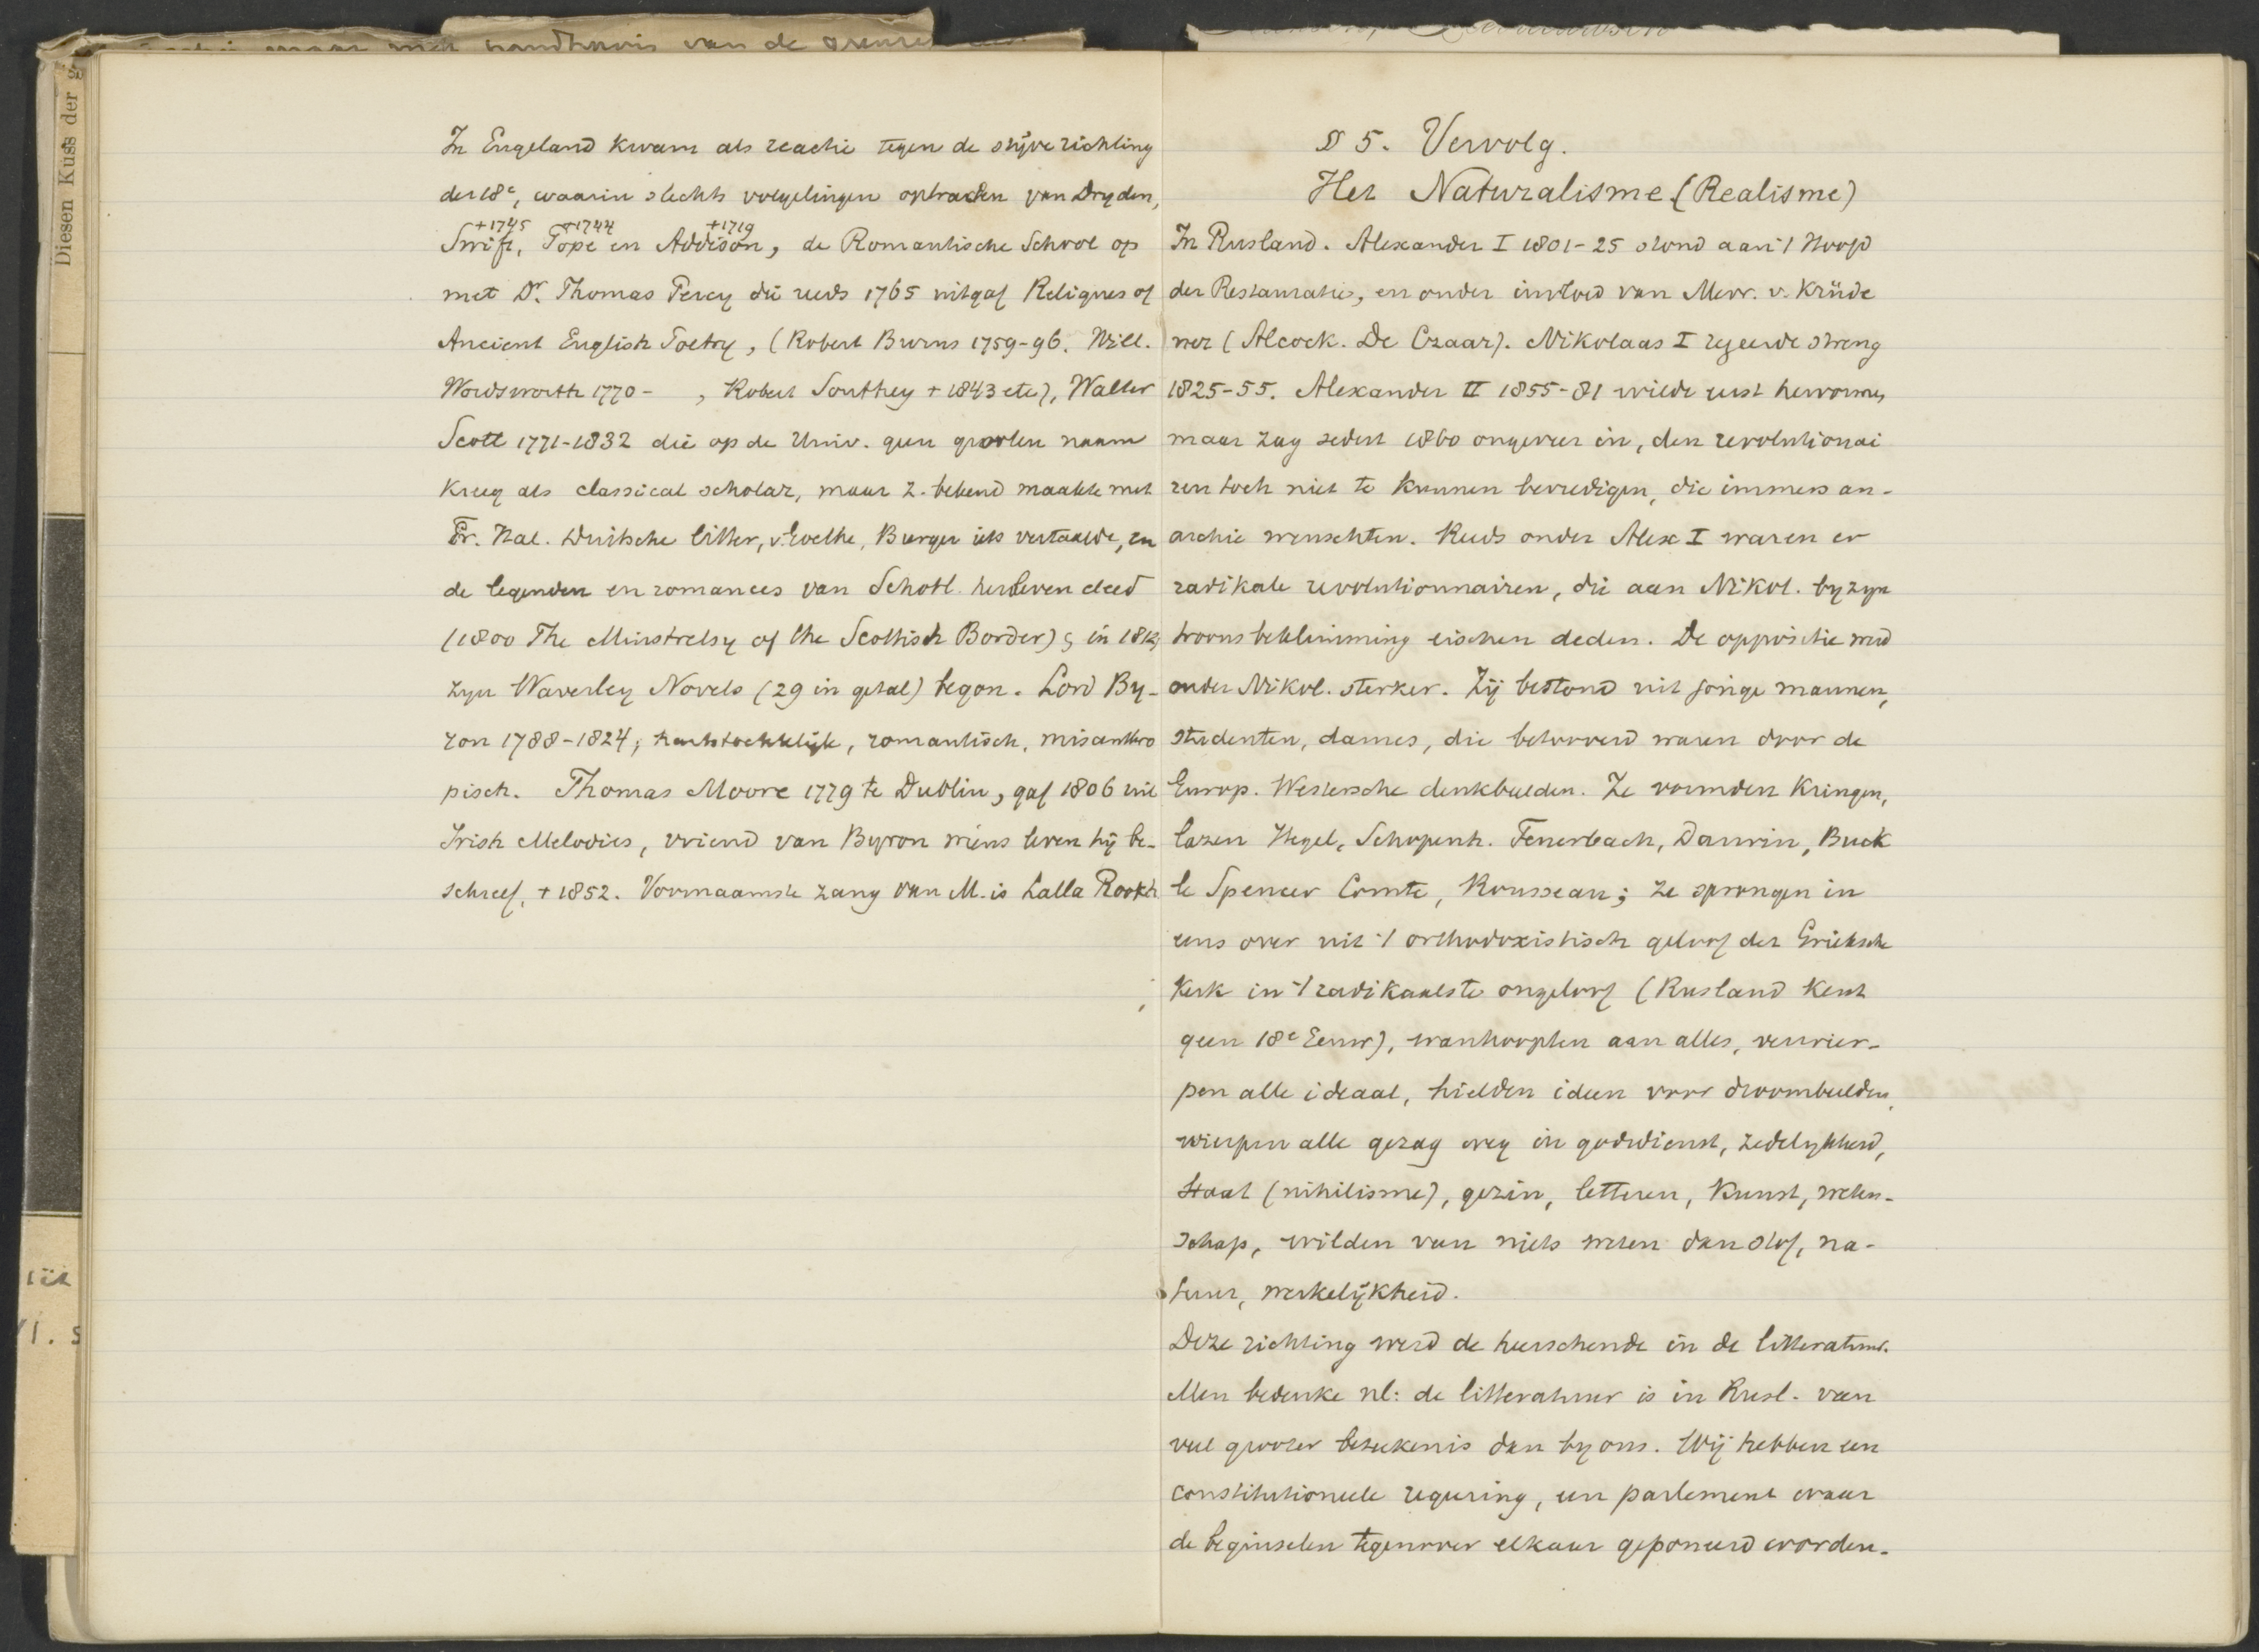 Diesen Kuss der
In Engeland kwam als reactie tegen de stijve richting
der 18e, waarin slechts volgelingen optraden van Dryden,
+1745 +1744 +1719
Swift, Pope en Addison, de Romantische School op
met Dr. Thomas Percy die reeds 1765 uitgaf Reliques of
Ancient English Poetry, (Robert Burns 1759-96. Will.
Wordsworth 1770- , Robert Southey + 1843 etc), Walter
Scott 1771-1832 die op de Univ. geen grooten naam
kreeg als classical scholar, maar z. bekend maakte met
Fr. Ital. Duitsche litter, v. Goethe, Burger iets vertaalde, en
de legenden en romances van Schotl. herleven deed
(1800 The Minstrelsy of the Scottish Border) & in 1814
zyn Waverley Novels (29 in getal) begon. Lord By-
ron 1788-1824, hartstochtelijk, romantisch, misanthro
pisch. Thomas Moore 1779 te Dublin, gaf 1806 uit
Irish Melodies, vriend van Byron wiens leven hij be-
schreef, + 1852. Voornaamste zang van M. is Lalla Rookh
§ 5. Vervolg.
Het Naturalisme (Realisme)
In Rusland. Alexander I 1801-25 stond aan 't Hoofd
der Restauratie, en onder invloed van Mevr. v. Krüde
ner (Alcock. De Czaar). Nikolaas I regeerde streng
1825-55. Alexander II 1855-81 wilde eerst hervormen,
maar zag sedert 1860 ongeveer in, den revolutionai
ren toch niet te kunnen bevredigen, die immers an-
archie wenschten. Reeds onder Alex I waren er
radikale revolutionnairen, die aan Nikol. by zyn
troonsbeklimming eischen deden. De oppositie werd
onder Nikol. sterker. Zij bestond uit jonge mannen,
studenten, dames, die betooverd waren door de
Europ. Westersche denkbeelden. Ze vormden Kringen,
lazen Hegel, Schopenh. Feuerbach, Darwin, Buck
le Spencer Comte, Rousseau; ze sprongen in
eens over uit 't orthodoxistisch geloof der Grieksche
Kerk in 't radikaalste ongeloof (Rusland kent
geen 18e Eeuw), wanhoopten aan alles, verwier-
pen alle ideaal, hielden ideen voor droombeelden,
wierpen alle gezag weg in godsdienst, zedelykheid,
Staat (nihilisme), gezin, letteren, Kunst, weten-
schap, wilden van niets weten dan stof, na-
tuur, werkelijkheid.
Deze richting werd de heerschende in de litteratuur.
Men bedenke nl: de litteratuur is in Rusl. van
veel grooter beteekenis dan by ons. Wij hebben een
constitutioneele regeering, een parlement waar
de beginselen tegenover elkaar geponeerd worden.